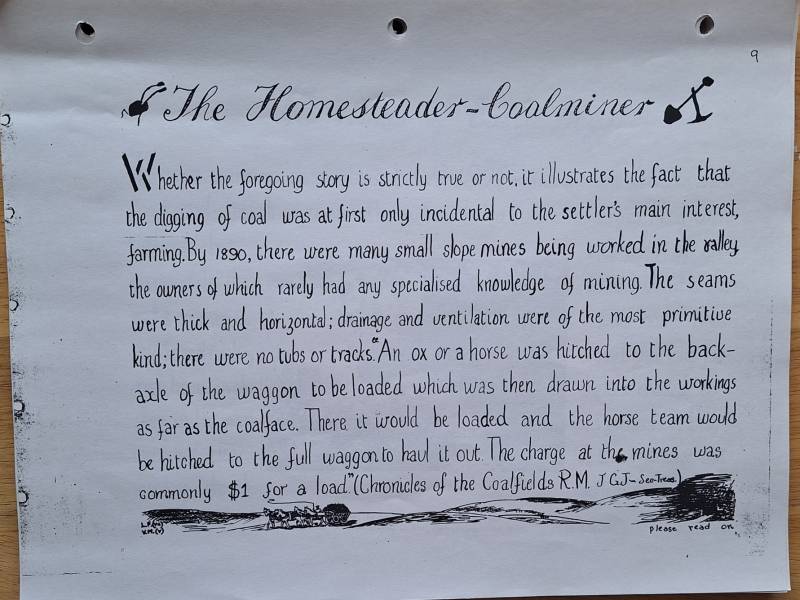 9
The Homesteader-Coalminer
Whether the foregoing story is strictly true or not, it illustrates the fact that
the digging of coal was at first only incidental to the settler's main interest,
farming. By 1890, there were many small slope mines being worked in the valley,
the owners of which rarely had any specialised knowledge of mining. The seams
were thick and horizontal; drainage and ventilation were of the most primitive
kind; there were no tubs or tracks. "An ox or a horse was hitched to the back-
axle of the waggon to be loaded which was then drawn into the workings
as far as the coalface. There it would be loaded and the horse team would
be hitched to the full waggon to haul it out. The charge at the mines was
commonly $1 for a load." (Chronicles of the Coalfields R.M. J G.J- Sec-Treas.)
please read on